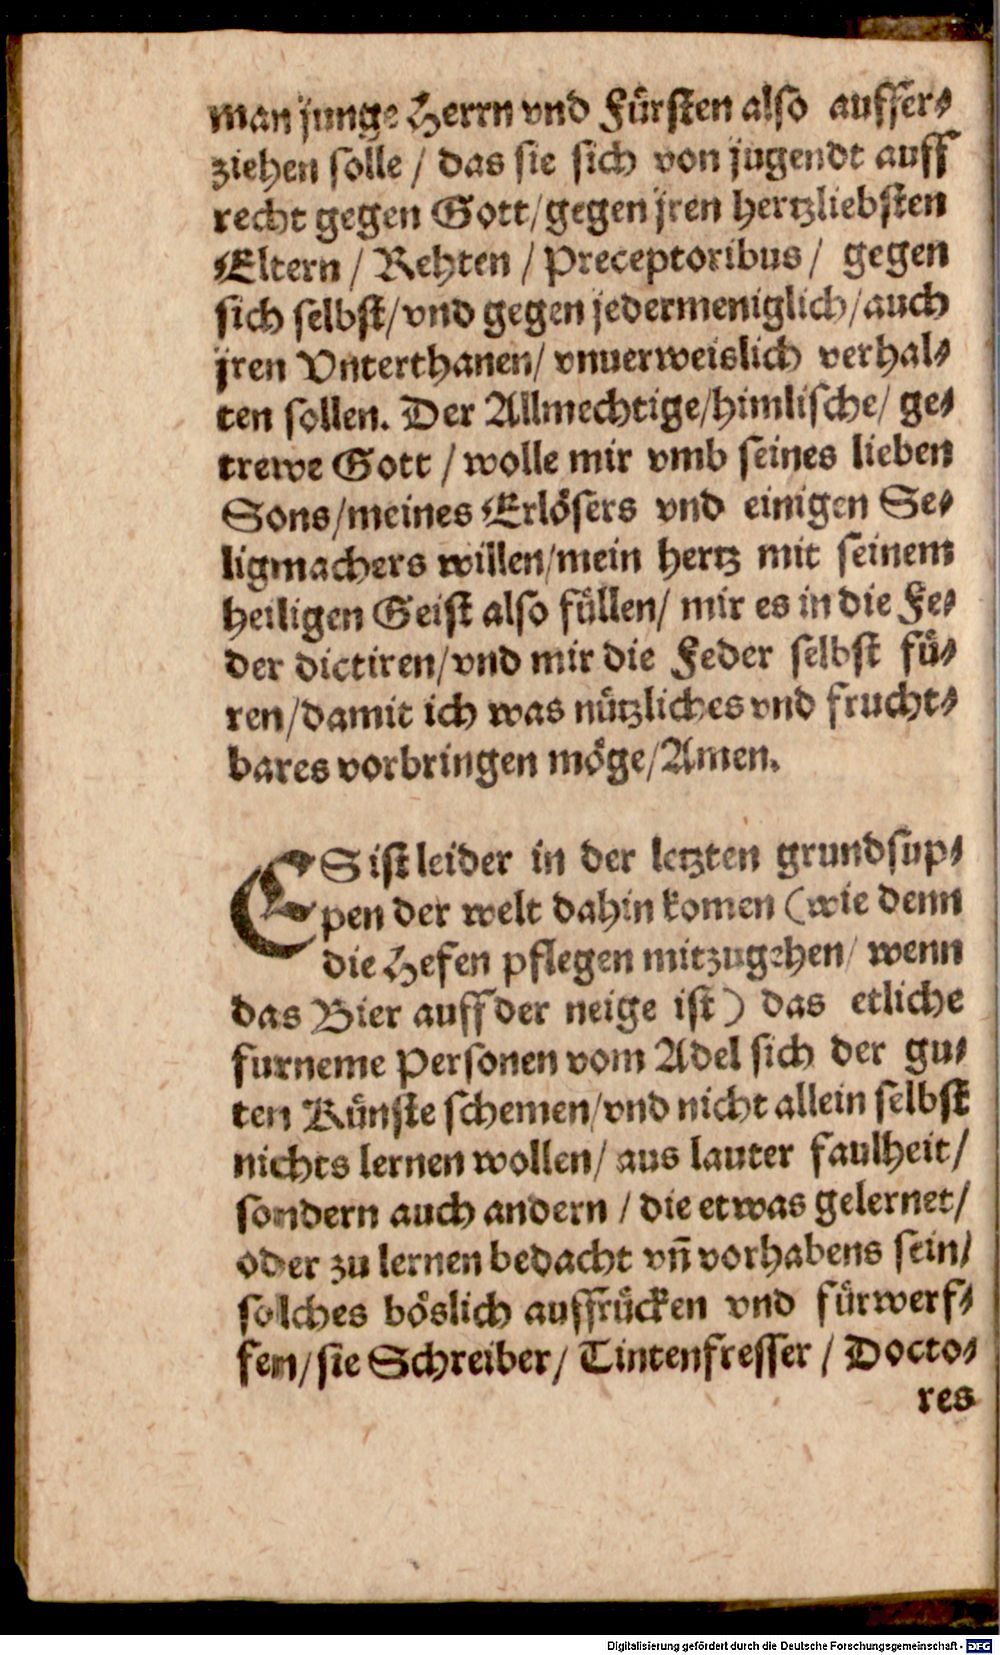 man junge Herrn vnd Fürsten also auffer⸗
ziehen solle / das sie sich von jugendt auff
recht gegen Gott/gegen jren hertzliebsten
Eltern / Rehten / Preceptoribus / gegen
sich selbst/vnd gegen jedermeniglich/auch
jren Vnterthanen/ vnuerweislich verhal⸗
ten sollen. Der Allmechtige/himlische/ ge⸗
trewe Gott / wolle mir vmb seines lieben
Sons/meines Erlösers vnd einigen Se⸗
ligmachers willen/mein hertz mit seinem
heiligen Geist also füllen/ mir es in die Fe⸗
der dictiren/vnd mir die Feder selbst fü⸗
ren/damit ich was nützliches vnd frucht⸗
bares vorbringen möge/Amen.
ES ist leider in der letzten grundsup⸗
pen der welt dahin komen (wie denn
die Hefen pflegen mitzugehen/ wenn
das Bier auff der neige ist) das etliche
furneme Personen vom Adel sich der gu⸗
ten Künste schemen/vnd nicht allein selbst
nichts lernen wollen/ aus lauter faulheit/
sondern auch andern / die etwas gelernet/
oder zu lernen bedacht vñ vorhabens sein/
solches böslich auffrücken vnd fürwerf⸗
fen/sie Schreiber/ Tintenfresser / Docto⸗
res
Digitalisierung gefördert durch die Deutsche Forschungsgemeinschaft - DFG